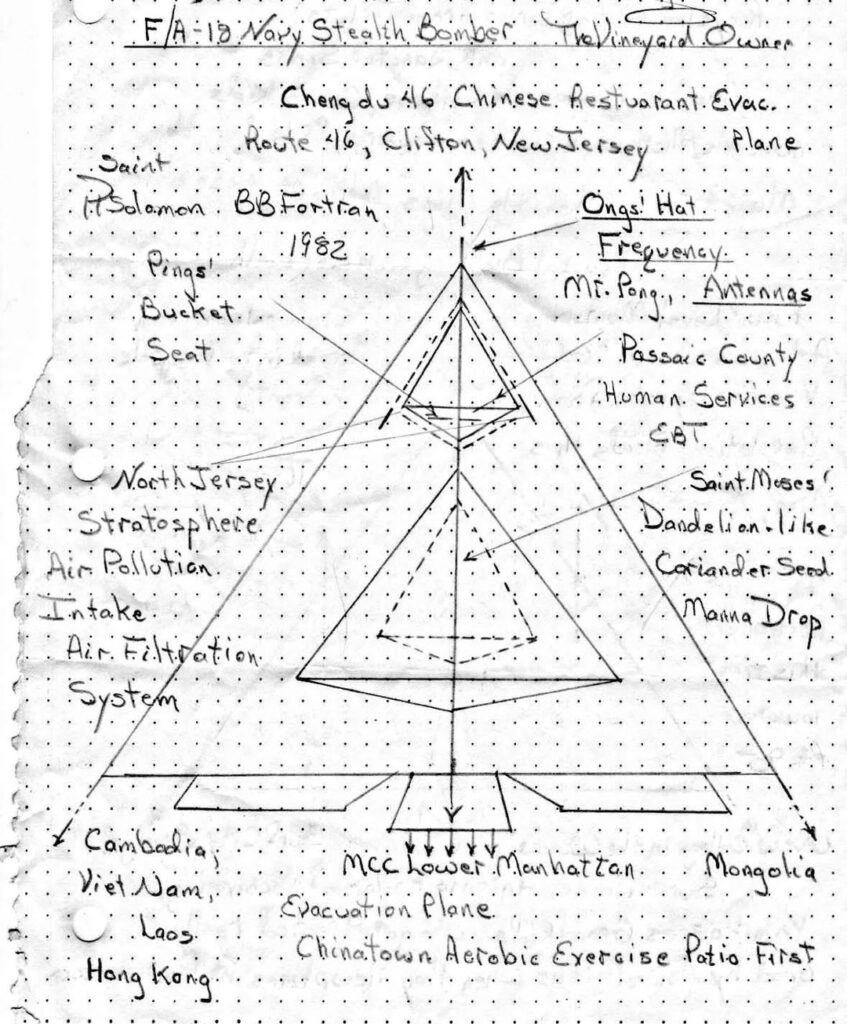 F/A-18 Navy Stealth Bomber The Vineyard Owner
Chengdu 46 Chinese Restuarant Evac.
Route 46, Clifton, New Jersey Plane
Saint
Solomon BB Fortran
1982
Pings'
Bucket
Seat
Ongs' Hat
Frequency
Mt. Pong, Antennas
Passaic County
Human Services
EBT
North Jersey
Stratosphere
Air Pollution
Intake
Air Filtration
System
Saint Moses'
Dandelion-like
Coriander Seed
Manna Drop
Cambodia,
Viet Nam,
Laos
Hong Kong
MCC Lower Manhattan
Evacuation Plane
Chinatown Aerobic Exercise Patio First
Mongolia